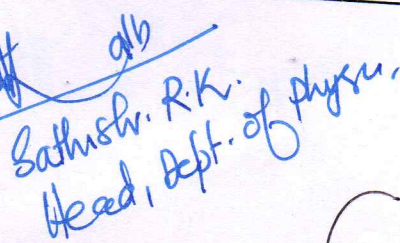 Sathish. R.K.
Head, Dept. of Physics,